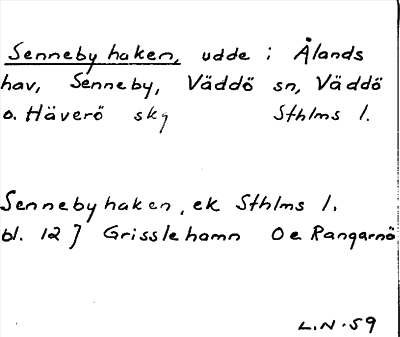 Senneby haken, udde i Ålands
hav, Senneby, Väddö sn, Väddö
o. Häverö skg Sthlms l.
Sennebyhaken, ek Sthlms l.
bl. 12] Grisslehamn Oe Rangarnö
L.N. 59